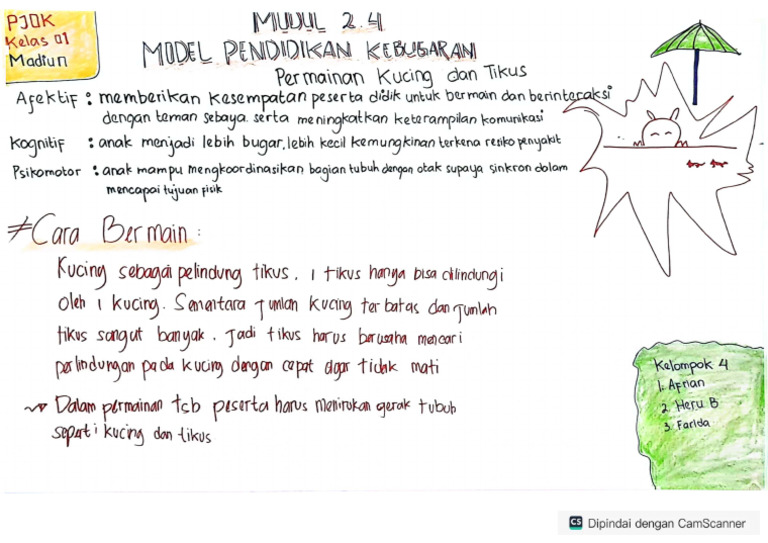 PJOK
Kelas 01
Madiun
MUDUL 2.4
MODEL PENDIDIKAN KEBUGARAN
Permainan Kucing dan Tikus
Afektif : memberikan kesempatan peserta didik untuk bermain dan berinteraksi
dengan teman sebaya. serta meningkatkan keterampilan komunikasi
Kognitif : anak menjadi lebih bugar, lebih kecil kemungkinan terkena resiko penyakit
Psikomotor : anak mampu mengkoordinasikan bagian tubuh dengan otak supaya sinkron dalam
mencapai tujuan fisik
#Cara Bermain :
Kucing sebagai pelindung tikus. 1 tikus hanya bisa dilindungi
oleh 1 kucing. Sementara Jumlah kucing terbatas dan Jumlah
tikus sangat banyak. Jadi tikus harus berusaha mencari
perlindungan pada kucing dengan cepat agar tidak mati
Dalam permainan tsb peserta harus menirukan gerak tubuh
seperti kucing dan tikus
Kelompok 4
1. Afrian
2. Heru B
3. Farida
CS Dipindai dengan CamScanner